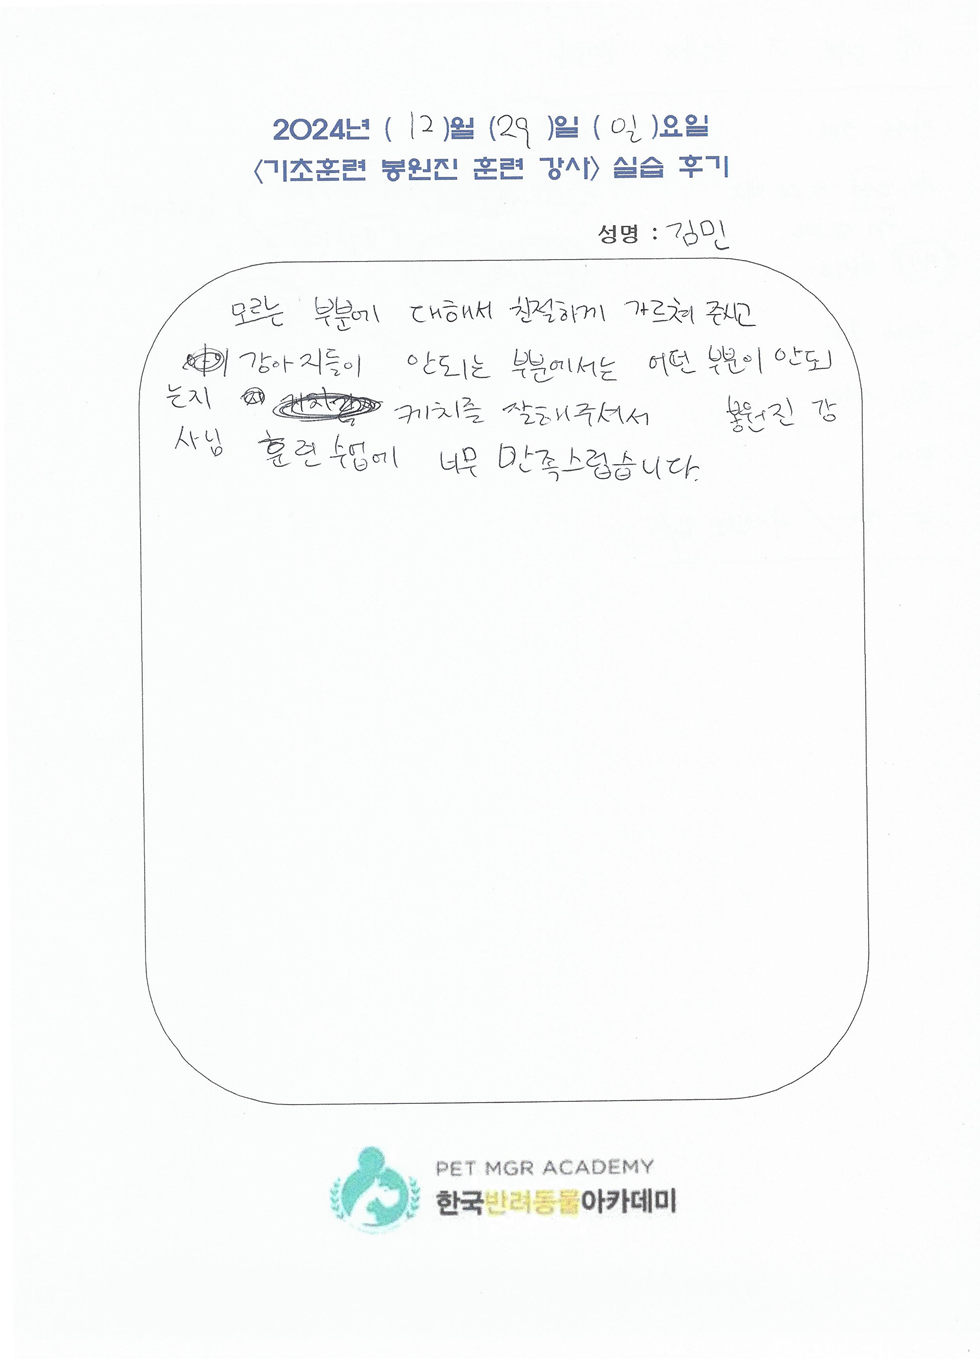 2024년 ( 12 )월 (29 )일 ( 일 )요일
<기초훈련 봉원진 훈련 강사> 실습 후기
성명 : 김민
모르는 부분에 대해서 친절하게 가르쳐 주시고
강아지들이 안되는 부분에서는 어떤 부분이 안되
는지 케치를 잘해주셔서 봉원진 강
사님 훈련 수업에 너무 만족스럽습니다.
PET MGR ACADEMY
한국반려동물아카데미